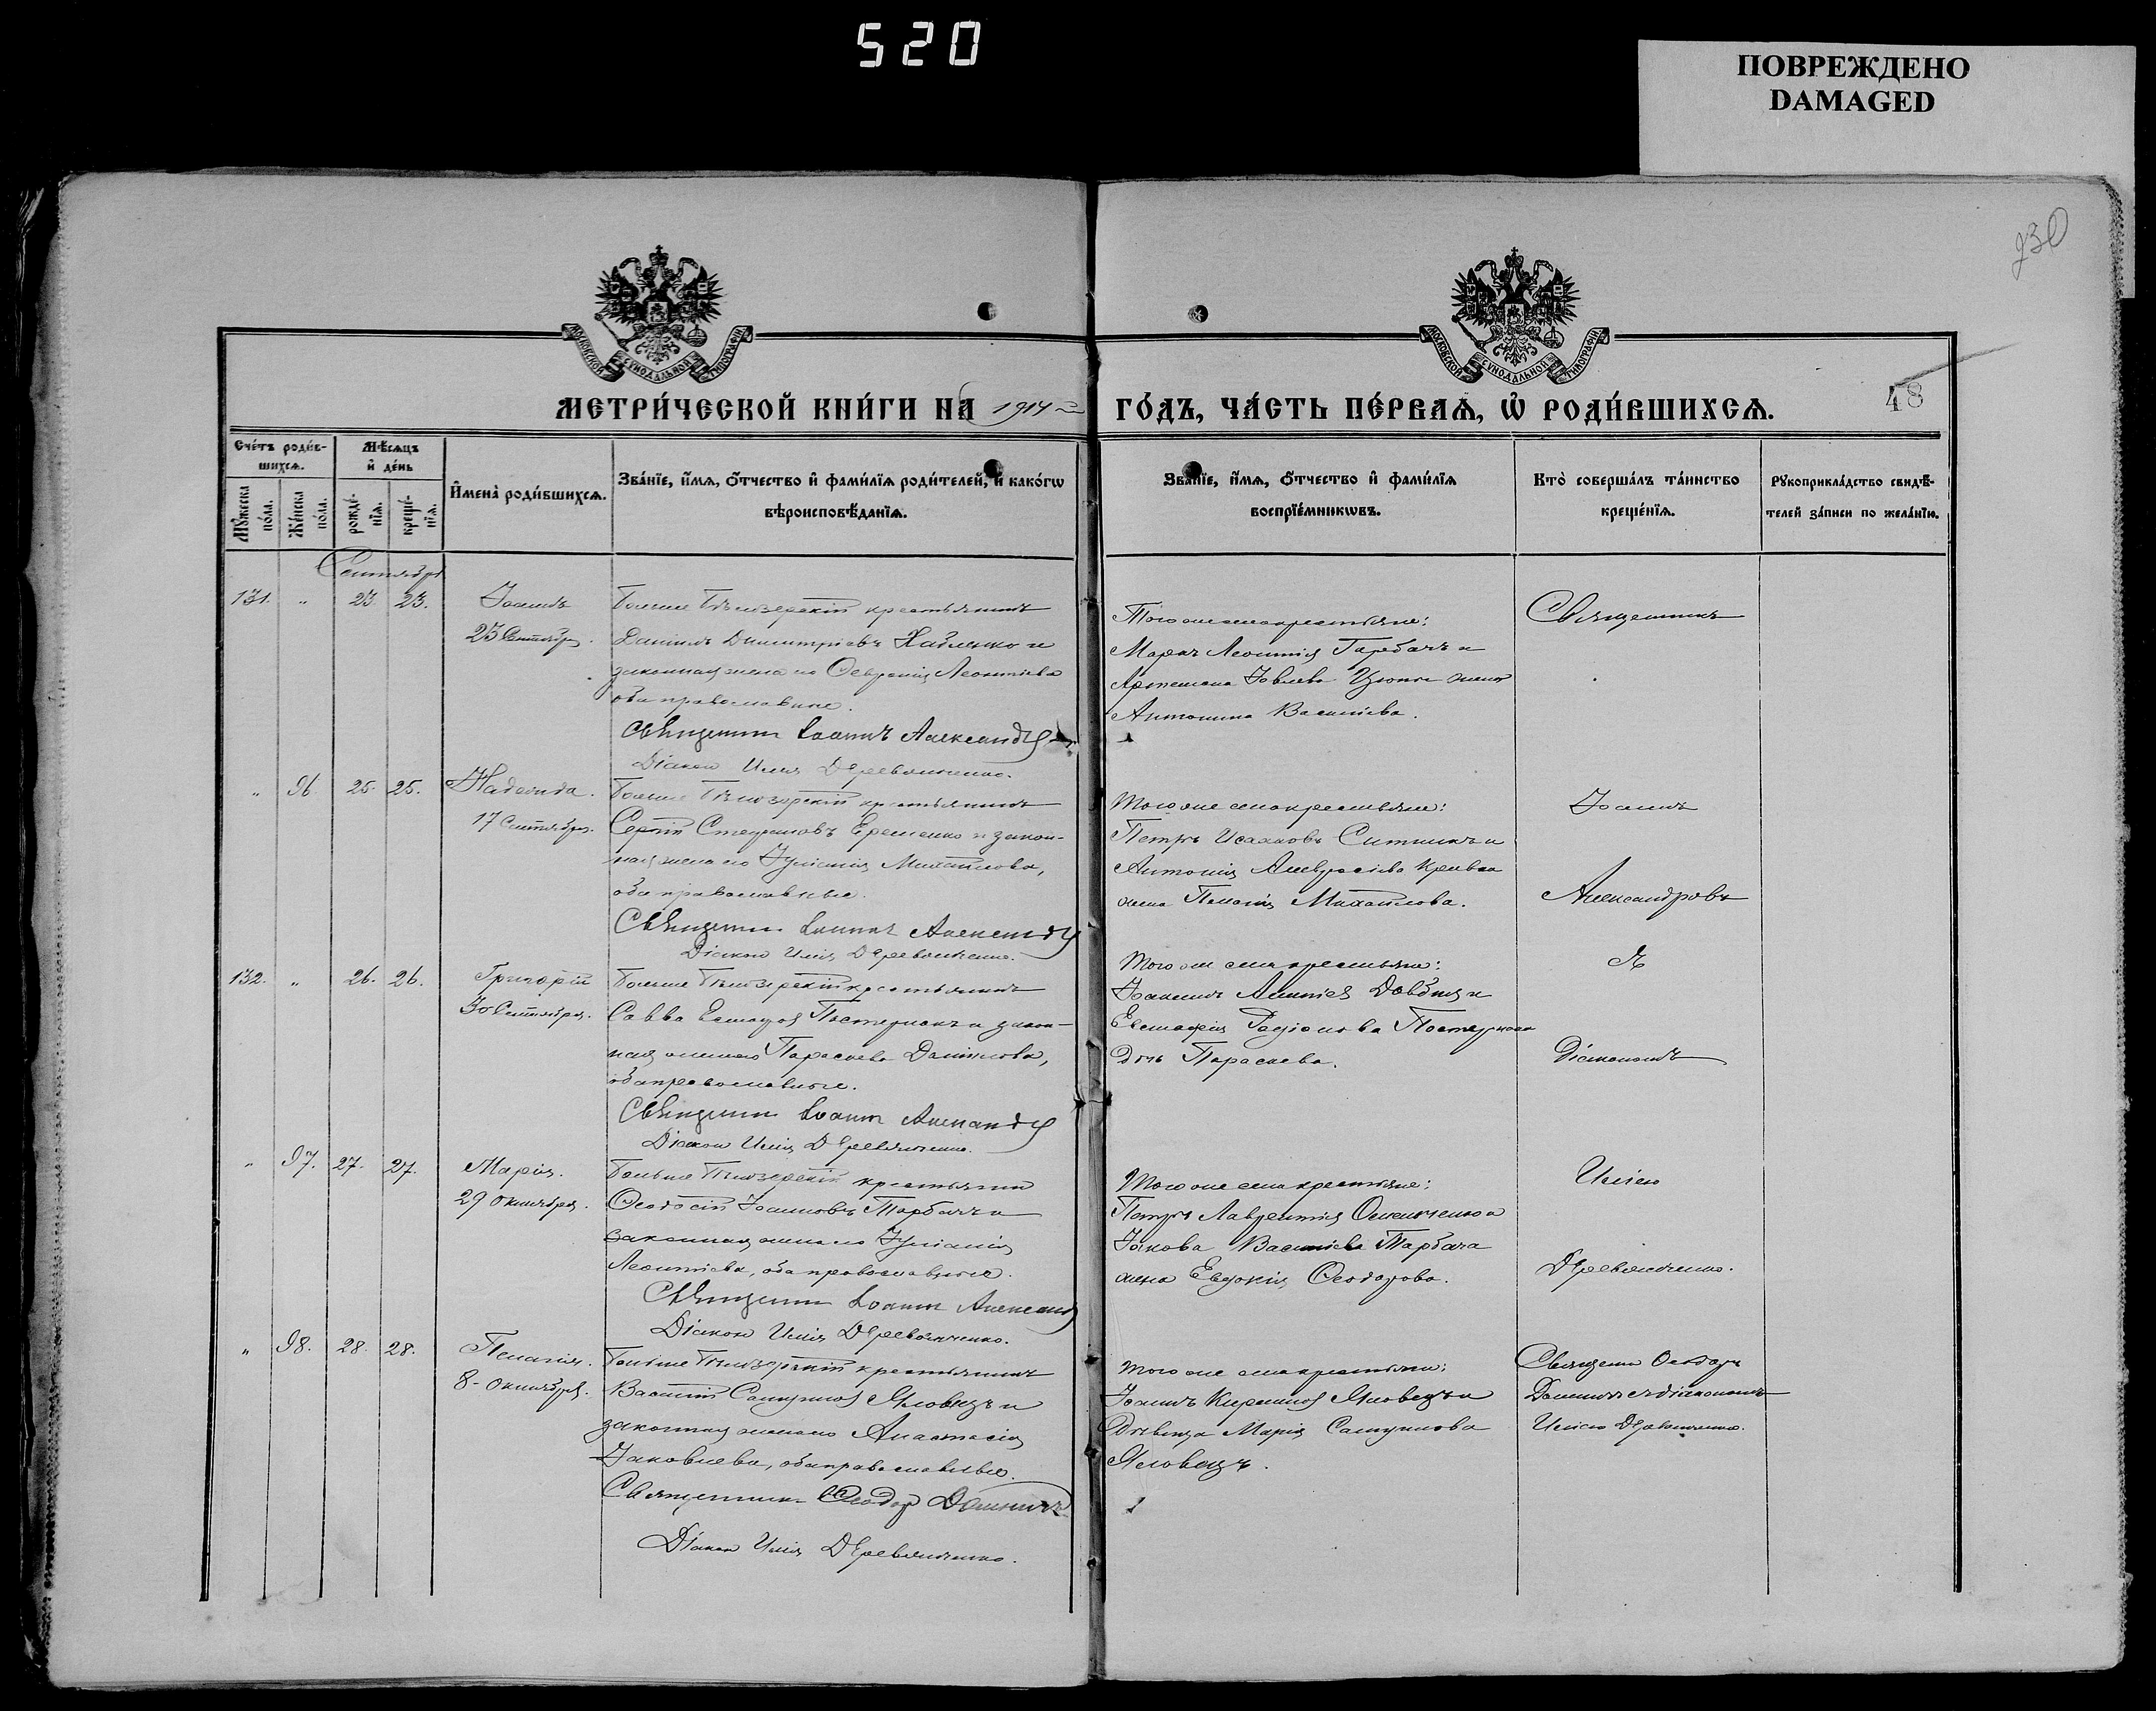 520
ПОВРЕЖДЕНО
DAMAGED
230
МОСКОВСКОЙ СѴНОДАЛЬНОЙ ТИПОГРАФІИ
МОСКОВСКОЙ СѴНОДАЛЬНОЙ ТИПОГРАФІИ
МЕТРИ́ЧЕСКОЙ КНИ́ГИ НА 1914
ГО́ДЪ, ЧА́СТЬ ПЕ́РВАѦ, Ѡ҆ РОДИ́ВШИХСѦ.
48
Сче́тъ роди́в-
шихсѧ.
Мѣ́сѧцъ
и҆ де́нь
Мꙋ́жеска
по́ла.
Же́нска
по́ла.
рожде́-
нїѧ.
креще́-
нїѧ.
И҆мена̀ роди́вшихсѧ.
Зва́нїе, и҆́мѧ, ѻ҆́тчество и҆ фами́лїѧ роди́телей, и҆ како́гѡ
вѣроисповѣ́данїѧ.
Зва́нїе, и҆́мѧ, ѻ҆́тчество и҆ фами́лїѧ
воспрїе́мникѡвъ.
Кто̀ соверша́лъ та́инство
креще́нїѧ.
Рꙋкоприкла́дство свидѣ́-
телей за́писи по жела́нїю.
Сентябрь
131. " 23 23. Іоаннъ
23 Сентября.
Больше Бѣлозерскій крестьянинъ
Даніилъ Димитріевъ и
законная жена его Леонтіева
оба православные.
Священникъ Іоаннъ Александр
Діаконъ Илія Деревянченко.
Того же села крестьяне:
Маркъ Леонтіев и
Іовлева жена
Антонина Василіева.
Священникъ
" 96 25. 25. Надежда.
17 Сентября.
Больше Бѣлозерскій крестьянинъ
Сергій Стефановъ Еременко и закон-
ная жена его Іуліанія Михаилова,
оба православные.
Священникъ Іоаннъ Александр
Діаконъ Илія Деревянченко.
Того же села крестьяне:
Петръ Исааковъ Ситникъ и
Антонія Амвросіева
жена Пелагія Михаилова.
Іоаннъ
Александровъ
132. " 26. 26. Григорій
30 Сентября.
Больше Бѣлозерскій крестьянинъ
Савва и закон-
ная жена его Параскева Даніилова,
оба православные.
Священникъ Іоаннъ Александр
Діаконъ Илія Деревянченко.
Того же села крестьяне:
и
Евстафія Родіонова
дочь Параскева.
съ
Діакономъ
" 97. 27. 27. Марія.
29 Октября.
Больше Бѣлозерскій крестьянинъ
Ѳеодосій Іоанновъ Тарбачъ и
законная жена его Іуліанія
Леонтіева, оба православные.
Священникъ Іоаннъ Александр
Діаконъ Илія Деревянченко.
Того же села крестьяне:
Петръ Лаврентія и
Іакова Василіева Тарбача
жена Евдокія Ѳеодорова.
Иліею
Деревянченко.
" 98. 28. 28. Пелагія.
8 - Октября.
Больше Бѣлозерскій крестьянинъ
Василій Яловецъ и
законная жена его Анастасія
Іаковлева, оба православные.
Священникъ Ѳеодор
Діаконъ Илія Деревянченко.
Того же села крестьяне:
Іоаннъ Кириллов Яловецъ и
дѣвица Марія
Яловецъ.
Священ Ѳеодоръ
съ діакономъ
Иліею Деревянченко.